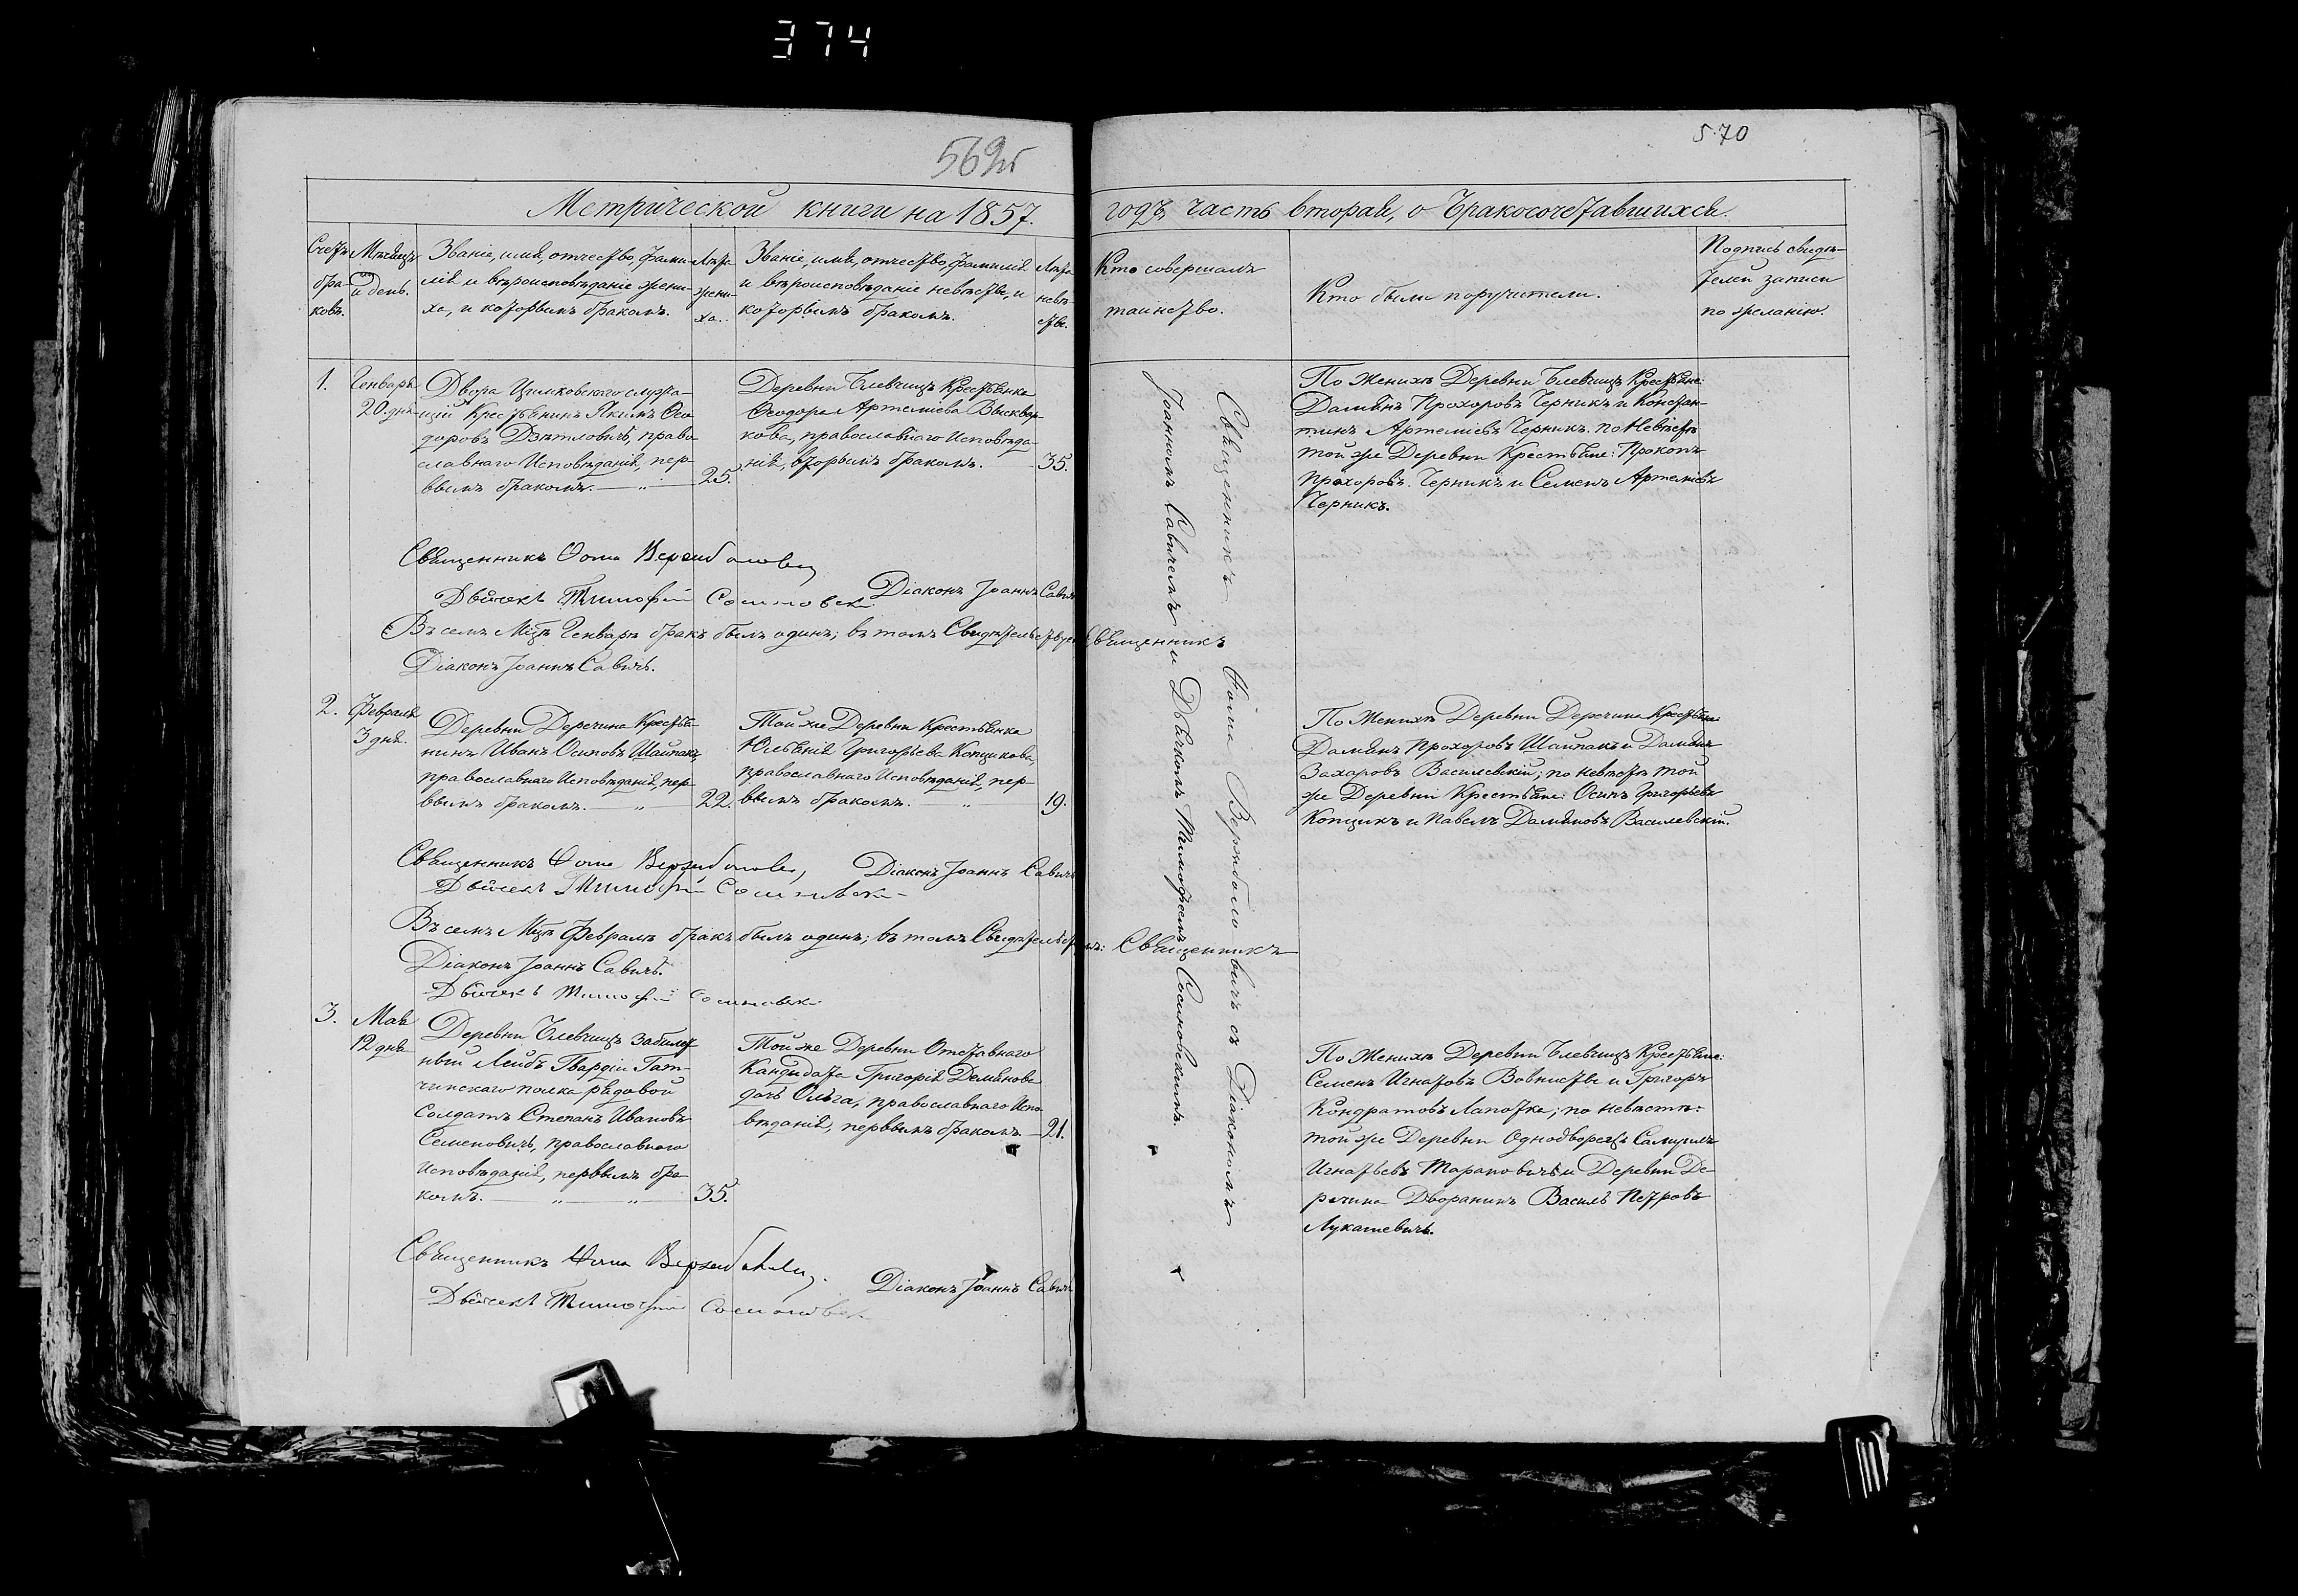 374
569об
570
Метрической книги на 1857.
годъ, часть вторая, о бракосочетавшихся.
Счетъ
бра-
ковъ.
Мѣсяцъ
и день.
Званіе, имя, отчество, фами-
лія и вѣроисповѣданіе жени-
ха, и которымъ бракомъ.
Лѣта
жени-
ха.
Званіе, имя, отчество, фамилія
и вѣроисповѣданіе невѣсты, и
которымъ бракомъ.
Лѣта
невѣ-
сты.
Кто совершалъ
таинство.
Кто были поручители.
Подпись свидѣ-
телей записи
по желанію.
1.
Генваря
20. дня
Двора служа-
щій Крестьянинъ Якимъ Ѳео-
доровъ Дзятловичъ, право-
славнаго Исповѣданія, пер-
вымъ бракомъ. — „ —
25.
Деревни Блевчицъ Крестьянка
Ѳеодора Артеміева
православнаго Исповѣда-
нія, вторымъ бракомъ.
35.
По Женихѣ Деревни Блевчицъ Крестьяне:
Даміянъ Прохоровъ Черникъ и Констан-
тинъ Артеміевъ Черникъ. по Невѣстѣ
той же Деревни Крестьяне: Прокопъ
Прохоровъ Черникъ и Семенъ Артеміевъ
Черникъ.
Священникъ Ѳома Вержболовичъ
Діаконъ Іоаннъ Савичъ
Дьячекъ Тимофей Сосновскій
Въ семъ Мцѣ Генварѣ бракъ былъ одинъ; въ томъ Священникъ
Діаконъ Іоаннъ Савичъ.
2.
Февраля
3 дня.
Деревни Деречина Крестья-
нинъ Иванъ Осиповъ Шайпакъ,
православнаго Исповѣданія, пер-
вымъ бракомъ. „
22.
Той же Деревни Крестьянка
Юліянія Григорьева Копцикова,
православнаго Исповѣданія, пер-
вымъ бракомъ. „
19.
По Женихѣ Деревни Деречина Крестьяне:
Даміянъ Прохоровъ Шайпакъ и Даміянъ
Захаровъ Василевскій; по невѣстѣ той
же Деревни Крестьяне: Осипъ Григорьевъ
Копцикъ и Павелъ Даміяновъ Василевскій.
Священникъ Ѳома Вержболовичъ
Діаконъ Іоаннъ Савичъ
Дьячекъ Тимофей Сосновскій
Въ семъ Мцѣ Февралѣ бракъ былъ одинъ; въ томъ Священникъ
Діаконъ Іоаннъ Савичъ.
Дьячекъ Тимофей Сосновскій
3.
Мая
12 дня
Деревни Блевчицъ Забилет-
ный Лейбъ Гвардіи Гат-
чинскаго полка рядовой
Солдатъ Степанъ Ивановъ
Семеновичъ, православнаго
Исповѣданія, первымъ бра-
комъ. — „ — „
35.
Той же Деревни Отставнаго
Кандидата Григорія Демянова
дочь Ольга, православнаго Испо-
вѣданія, первымъ бракомъ.
21.
По Женихѣ Деревни Блевчицъ Крестьяне:
Семенъ Игнатовъ и Григоръ
Кондратовъ Лапотка; по невѣстѣ:
той же Деревни Однодворецъ Самуилъ
Игнатьевъ Тарановичъ и Деревни Де-
речина Дворянинъ Василь Петровъ
Лукашевичъ.
Священникъ Ѳома Вержболовичъ
Діаконъ Іоаннъ Савичъ
Дьячекъ Тимофей Сосновскій
Священникъ Ѳома Вержболовичъ съ Діакономъ
Іоанномъ Савичемъ и Дьячкомъ Тимофеемъ Сосновскимъ.